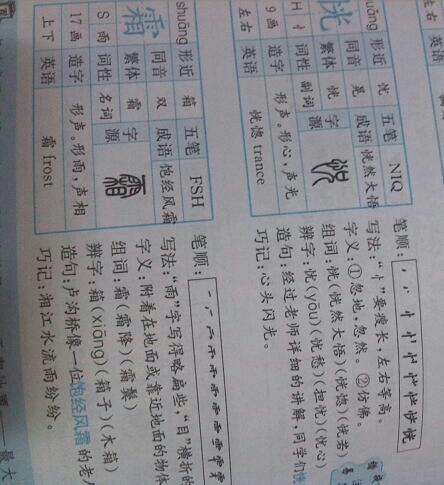 左右 英语
uǎng 形近 忧 五笔 NIQ
恍 同音 晃 成语 恍然大悟
繁体 恍 字源
H 忄 词性 副词
9画 造字 形声。形心,声光
左右 英语 恍惚 trance
笔顺:
写法:“忄”要瘦长,左右等高。
字义:①忽地;忽然。②仿佛。
组词:恍(恍然大悟)(恍惚)(恍若)
辨字:忧(yōu)(忧愁)(担忧)(忧心)
造句:经过老师详细的讲解,同学们恍
巧记:心头闪光。
shuāng 形近 箱 五笔 FSH
霜 同音 双 成语 饱经风霜
繁体 霜 字源
S 雨 词性 名词
17画 造字 形声。形雨,声相
上下 英语 霜 frost
笔顺:
写法:“雨”字写得略扁些,“目”横折的
字义:附着在地面或靠近地面的物体
组词:霜(霜降)(霜鬓)
辨字:箱(xiāng)(箱子)(木箱)
造句:卢沟桥像一位饱经风霜的老人
巧记:湘江水流雨纷纷。